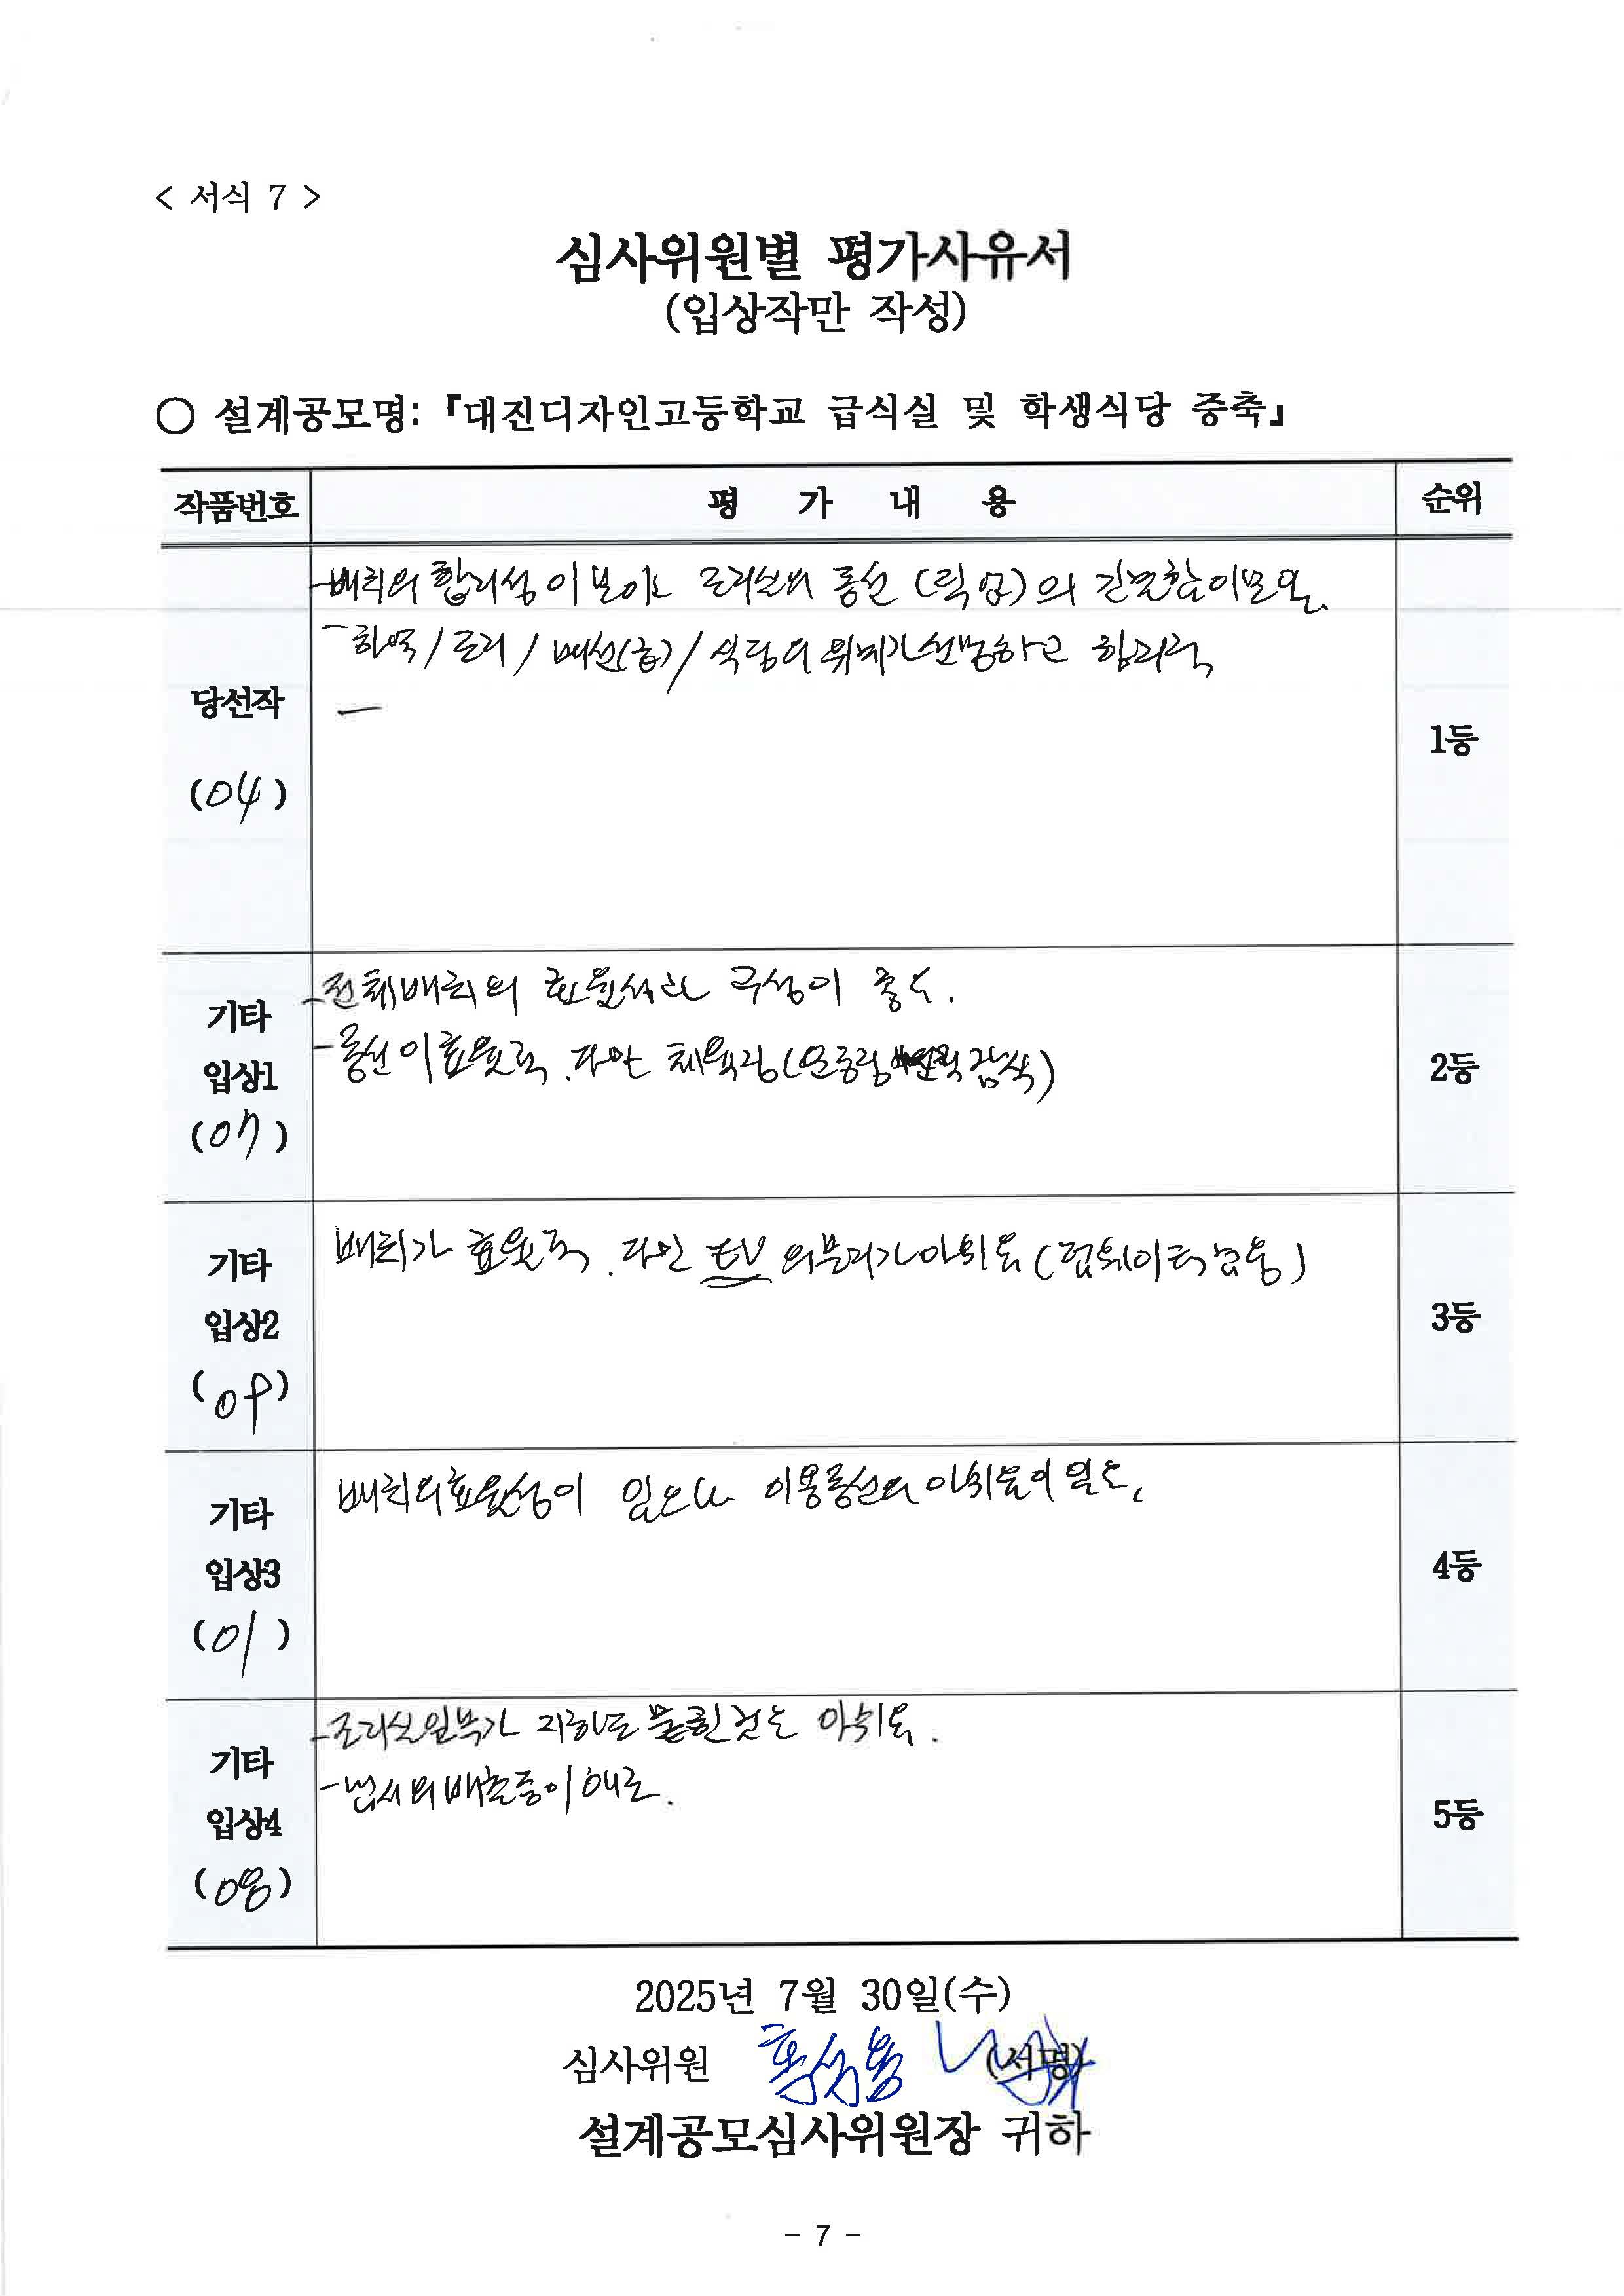 < 서식 7 >
심사위원별 평가사유서
(입상작만 작성)
○ 설계공모명: 『대진디자인고등학교 급식실 및 학생식당 증축』
작품번호
평 가 내 용
순위
당선작
(04)
-배치의 합리성이 보이나 조리실의 동선 (픽업)의 간결함이
-하역/조리/배선(홀)/식당의 위계가 선명하고 합리적
-
1등
기타
입상1
(07)
-전체배치의 효율성과 구성이 좋다.
-동선이 효율적. 다만 체육장(운동장 면적감소)
2등
기타
입상2
(09)
배치가 효율적. 다만 EV 의 분리가 아쉬움
3등
기타
입상3
(01)
배치의 효율성이 있으나 이용동선의 아쉬움이 있음.
4등
기타
입상4
(08)
-조리실일부가 지하로 물린것은 아쉬움.
-냄새의 배출등이 애로.
5등
2025년 7월 30일(수)
심사위원
(서명)
설계공모심사위원장 귀하
- 7 -